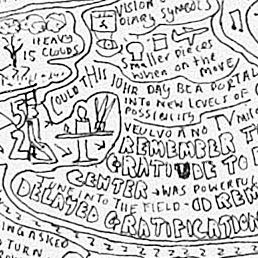 VISION
DIARY SYMBOLS
HEAVY
IS CLOUDS
SMALLER PIECES
WHEN ON THE
MOVE
COULD THIS 10HR DAY BE A PORTAL
INTO NEW LEVELS OF
POSSIBILITY
TV
REMEMBER
GRATITUDE TO
CENTER → WAS POWERFUL
TUNE INTO THE FIELD -
DELAYED GRATIFICATION
ASKED
TURN